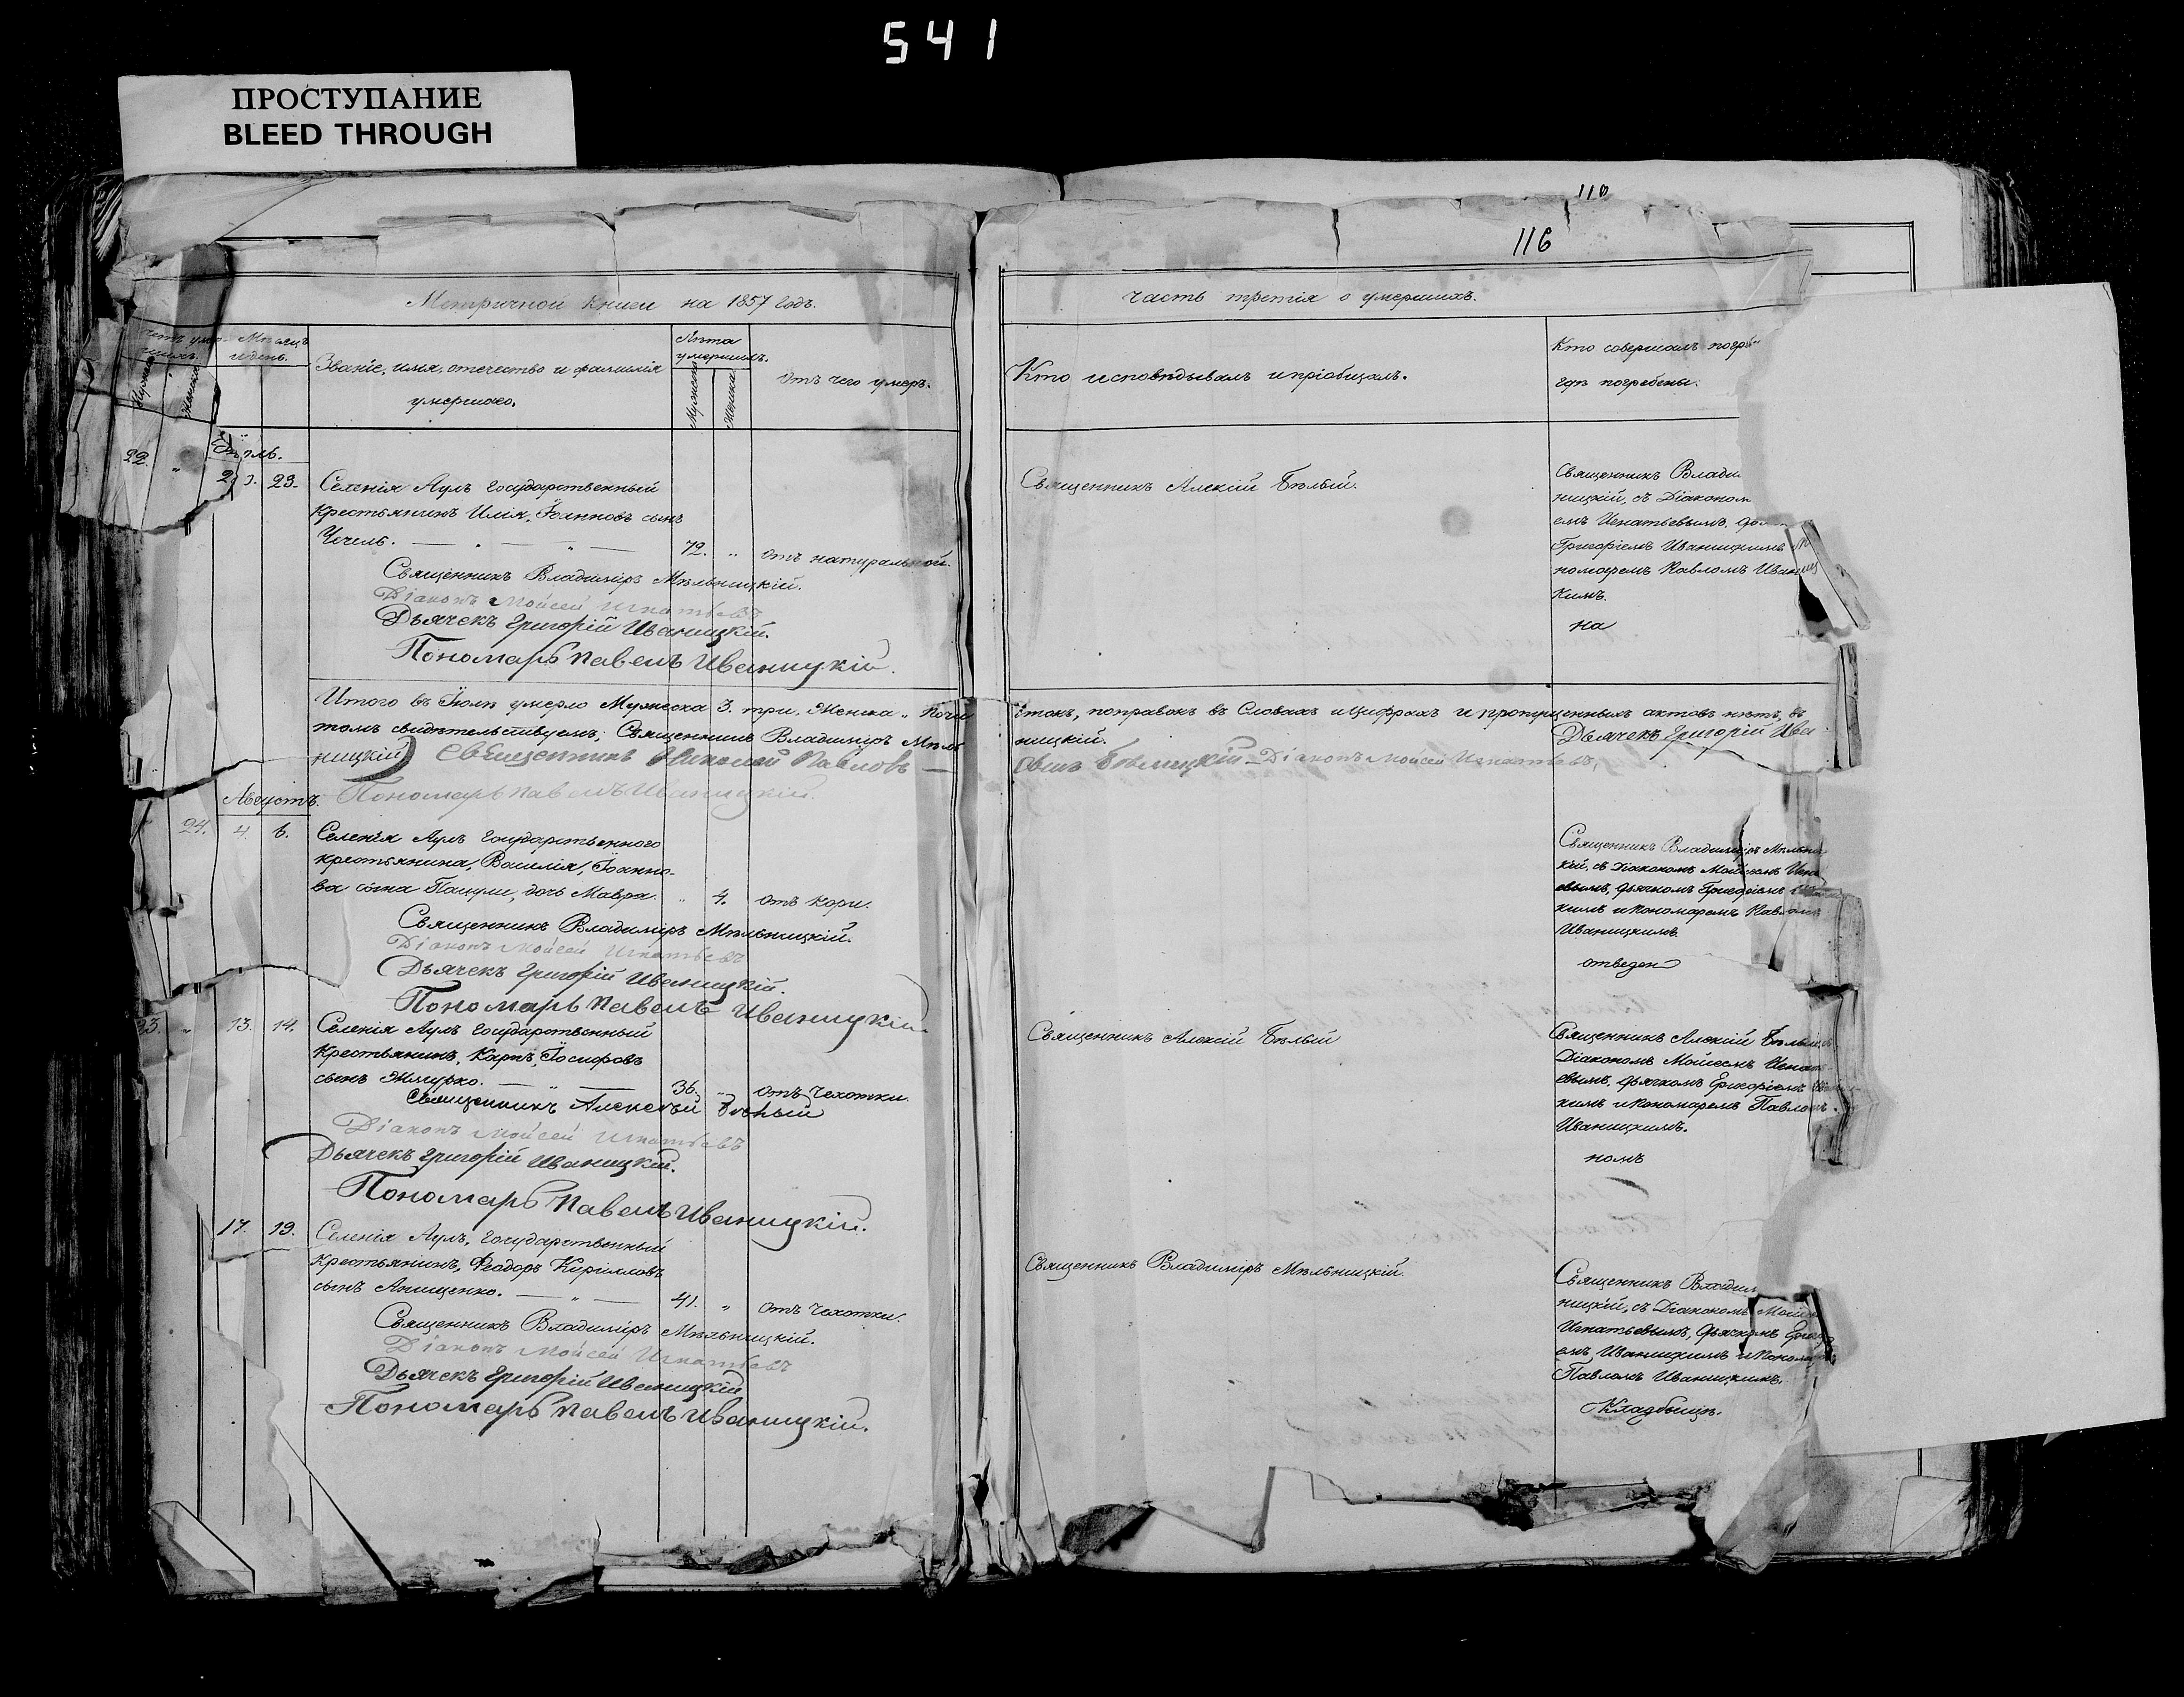 541
ПРОСТУПАНИЕ
BLEED THROUGH
110
116
Метричной книги на 1857 годъ.
Мѣсяцъ
и день.
Званіе, имя, отечество и фамилія
умершаго.
Лѣта
умершихъ.
Мужеска
Женска
Отъ чего умеръ.
22. " 23.
Селенія Аулъ государственный
крестьянинъ Илія, Іоанновъ сынъ
72. " Отъ натуральной.
Священникъ Владиміръ Мѣльницкій.
Діаконъ Мойсей Игнатьевъ
Дьячекъ Григорій Иваницкій.
Пономарь Павелъ Иваницкій.
Итого въ Іюлѣ умерло Мужеска 3. три, Женска "
томъ свидѣтельствуемъ: Священникъ Владиміръ Мѣль
ницкій) Священникъ Николай Павловъ
Пономарь Павелъ Иваницкій.
Августъ.
24. 4. 6. Селенія Аулъ государственнаго
крестьянина, Василія, Іоанно-
ва сына Пацули, дочь Мавра. " 4. отъ кори.
Священникъ Владиміръ Мѣльницкій.
Діаконъ Мойсей Игнатьевъ
Дьячекъ Григорій Иваницкій.
Пономарь Павелъ Иваницкій.
23. " 13. 14. Селенія Аулъ государственный
крестьянинъ, Карпъ, Іосифовъ
сынъ 36. " Отъ чахотки.
Священникъ Алексѣй Бѣлый
Діаконъ Мойсей Игнатьевъ
Дьячекъ Григорій Иваницкій.
Пономарь Павелъ Иваницкій.
17. 19. Селенія Аулъ, государственный
крестьянинъ, Феодоръ Кирилловъ
сынъ Анищенко. 41. " Отъ чахотки.
Священникъ Владиміръ Мѣльницкій.
Діаконъ Мойсей Игнатьевъ
Дьячекъ Григорій Иваницкій
Пономарь Павелъ Иваницкій.
часть третія о умершихъ.
Кто исповѣдывалъ и пріобщалъ.
Кто совершалъ погрѣ
гдѣ погребены.
Священникъ Алексій Бѣлый.
Священникъ Влади
ницкій, съ Діаконом
емъ Игнатьевымъ,
Григоріемъ Иваницкимъ
номаремъ Павломъ Иваниц
кимъ.
на
стокъ, поправокъ въ словахъ и цифрахъ и пропущенныхъ актовъ нѣтъ, въ
ницкій.
Дьячекъ Григорій Ива
Діаконъ Мойсей Игнатьевъ,
Священникъ Владиміръ Мѣльни
кій, съ Діакономъ Мойсеемъ Игна
евымъ, дьячкомъ Григоріемъ
кимъ и пономаремъ Павломъ
Иваницкимъ.
отведен
Священникъ Алексій Бѣлый
Священникъ Алексій Бѣлый, съ
Діакономъ Мойсеемъ Игнат
евымъ, дьячкомъ Григоріемъ
кимъ и пономаремъ Павломъ
Иваницкимъ.
номъ
Священникъ Владиміръ Мѣльницкій.
Священникъ Владим
ницкій, съ Діакономъ Мойсе
Игнатьевымъ, дьячкомъ Григорі
емъ, Иваницкимъ и Понома
Павломъ Иваницкимъ.
Кладбищѣ.